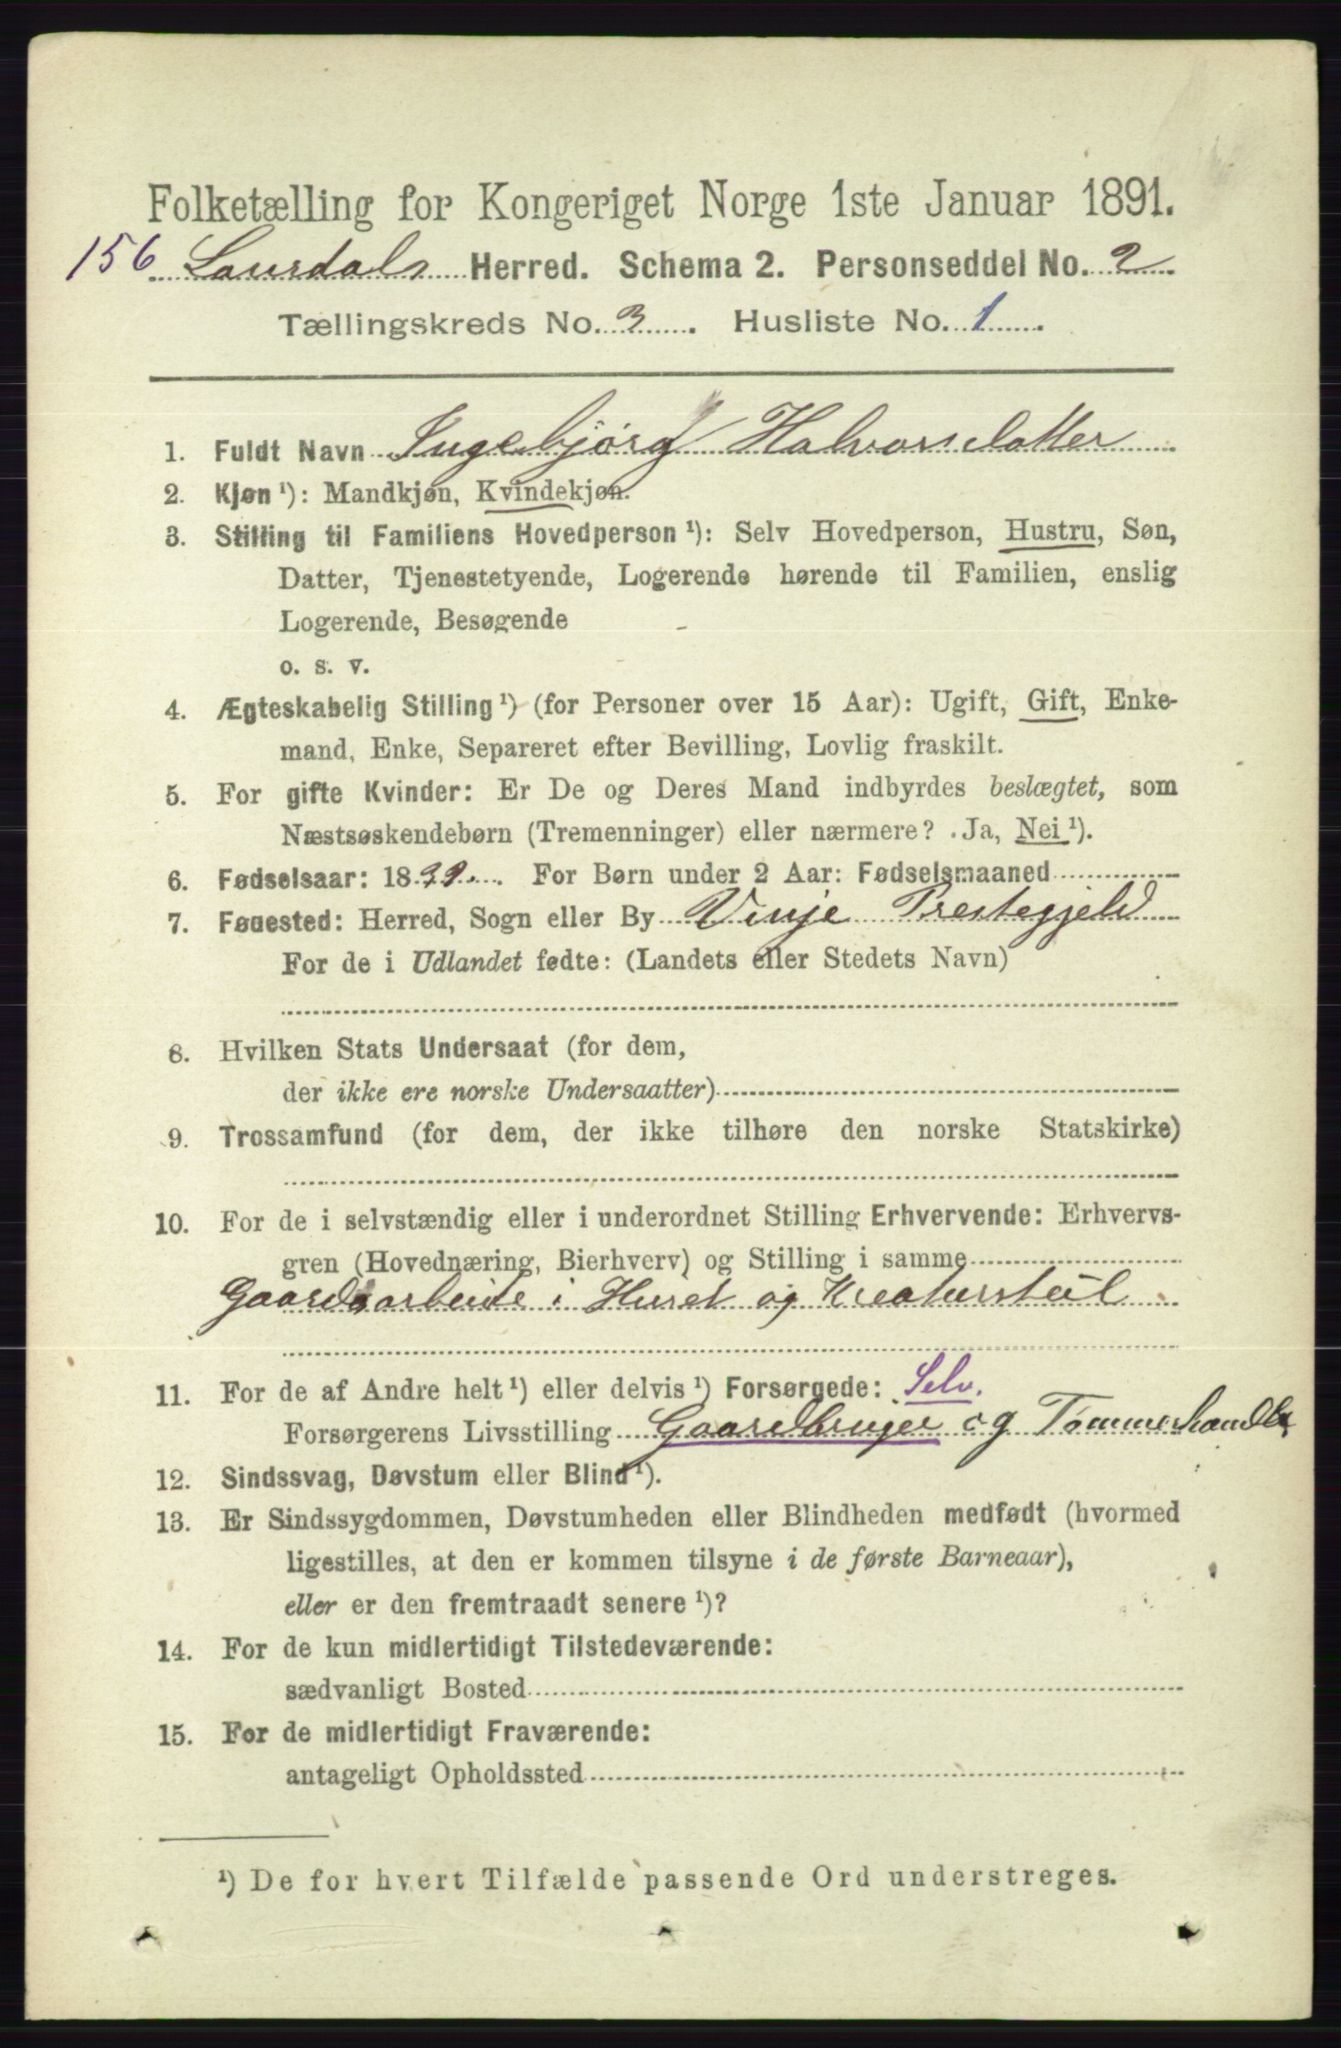 Folketælling for Kongeriget Norge 1ste Januar 1891.
156 Laurdals Herred. Schema 2. Personseddel No. 2
Tællingskreds No. 3. Husliste No. 1.
1. Fuldt Navn Ingebjørg Halvorsdatter
2. Kjøn ¹): Mandkjøn, Kvindekjøn.
3. Stilling til Familiens Hovedperson ¹): Selv Hovedperson, Hustru, Søn,
Datter, Tjenestetyende, Logerende hørende til Familien, enslig
Logerende, Besøgende
o. s. v.
4. Ægteskabelig Stilling ¹) (for Personer over 15 Aar): Ugift, Gift, Enke-
mand, Enke, Separeret efter Bevilling, Lovlig fraskilt.
5. For gifte Kvinder: Er De og Deres Mand indbyrdes beslægtet, som
Næstsøskendebørn (Tremenninger) eller nærmere? Ja, Nei ¹).
6. Fødselsaar: 18 . For Børn under 2 Aar: Fødselsmaaned
7. Fødested: Herred, Sogn eller By Vinje Prestegjeld
For de i Udlandet fødte: (Landets eller Stedets Navn)
8. Hvilken Stats Undersaat (for dem,
der ikke ere norske Undersaatter)
9. Trossamfund (for dem, der ikke tilhøre den norske Statskirke)
10. For de i selvstændig eller i underordnet Stilling Erhvervende: Erhvervs-
gren (Hovednæring, Bierhverv) og Stilling i samme
Gaardsarbeide i Huset og Kreaturstel
11. For de af Andre helt ¹) eller delvis ¹) Forsørgede: Selv.
Forsørgerens Livsstilling Gaardbruger og Tømmerhandler
12. Sindssvag, Døvstum eller Blind ¹).
13. Er Sindssygdommen, Døvstumheden eller Blindheden medfødt (hvormed
ligestilles, at den er kommen tilsyne i de første Barneaar),
eller er den fremtraadt senere ¹)?
14. For de kun midlertidigt Tilstedeværende:
sædvanligt Bosted
15. For de midlertidigt Fraværende:
antageligt Opholdssted
¹) De for hvert Tilfælde passende Ord understreges.